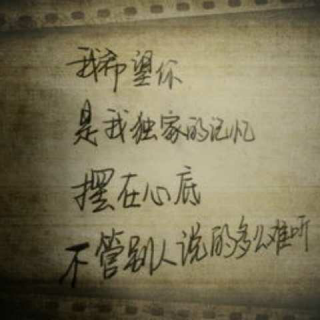 我希望你
是我独家的记忆
摆在心底
不管别人说的多么难听